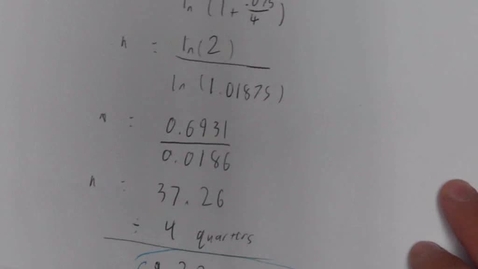 ln (1 + .075/4)
n = ln(2) / ln(1.01875)
n = 0.6931 / 0.0186
n = 37.26
÷ 4 quarters